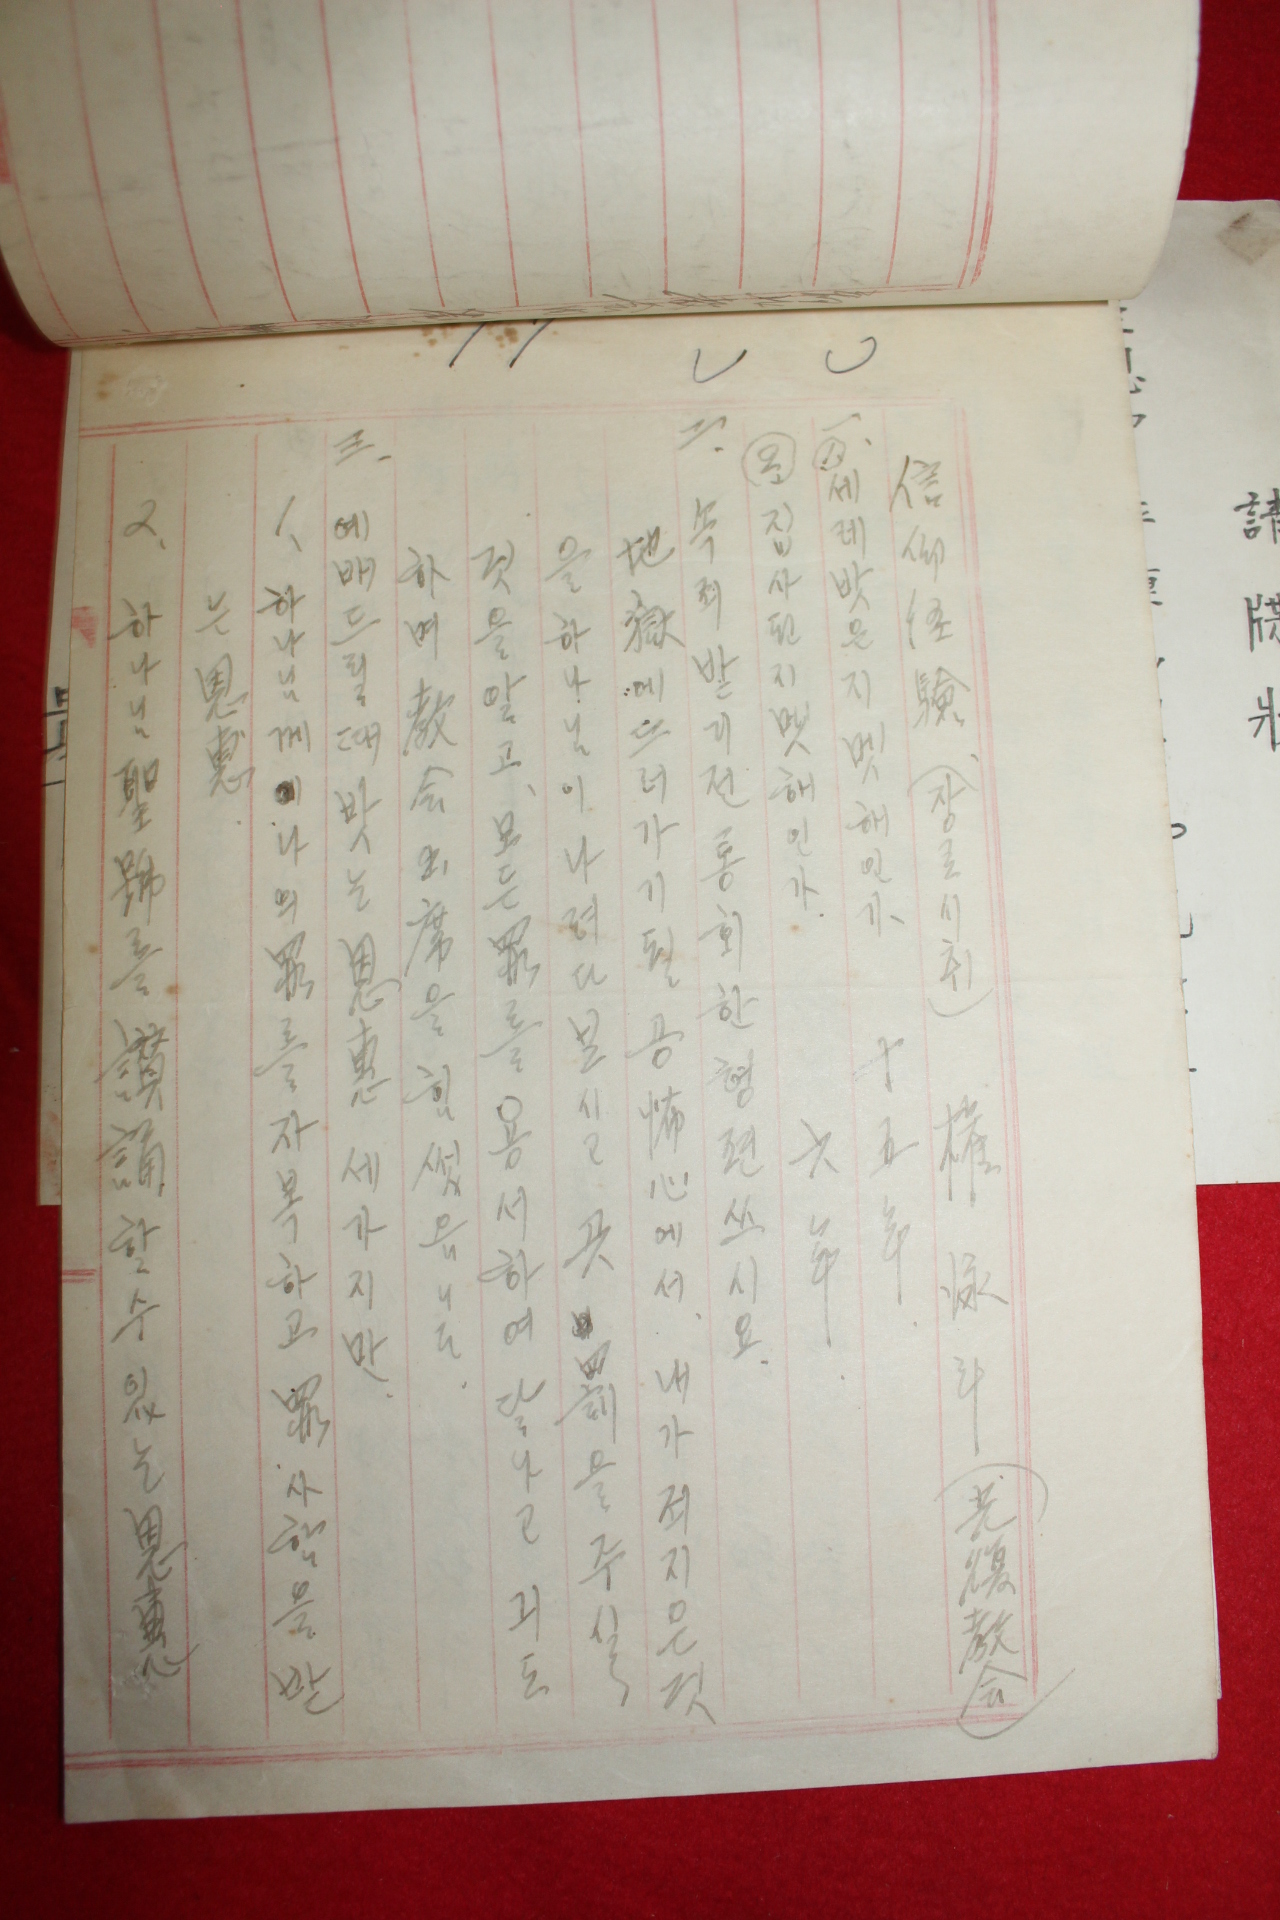 信仰經驗、(장로시취) 權泳斗 (光復敎会)
一. 세례밧은지 멧해인가、 十五年.
집사된지 멧해인가. 六年.
二. 속죄 받기전 통회한 형편 쓰시요.
地獄에 드러가기될 공怖心에서. 내가 죄지은것
을 하나님이 나려다 보실 곳 罰을 주실
것을 알고, 모든 罪를 용서하여 달나고 긔도
하며 敎会 出席을 힘썻읍니다.
三. 예배드릴때 밧는 恩惠 세가지만.
1、하나님께 나의 罪를 자복하고 罪사함을 받
는 恩惠.
2、하나님 聖號를 讚誦할수 있는 恩惠
請牒狀